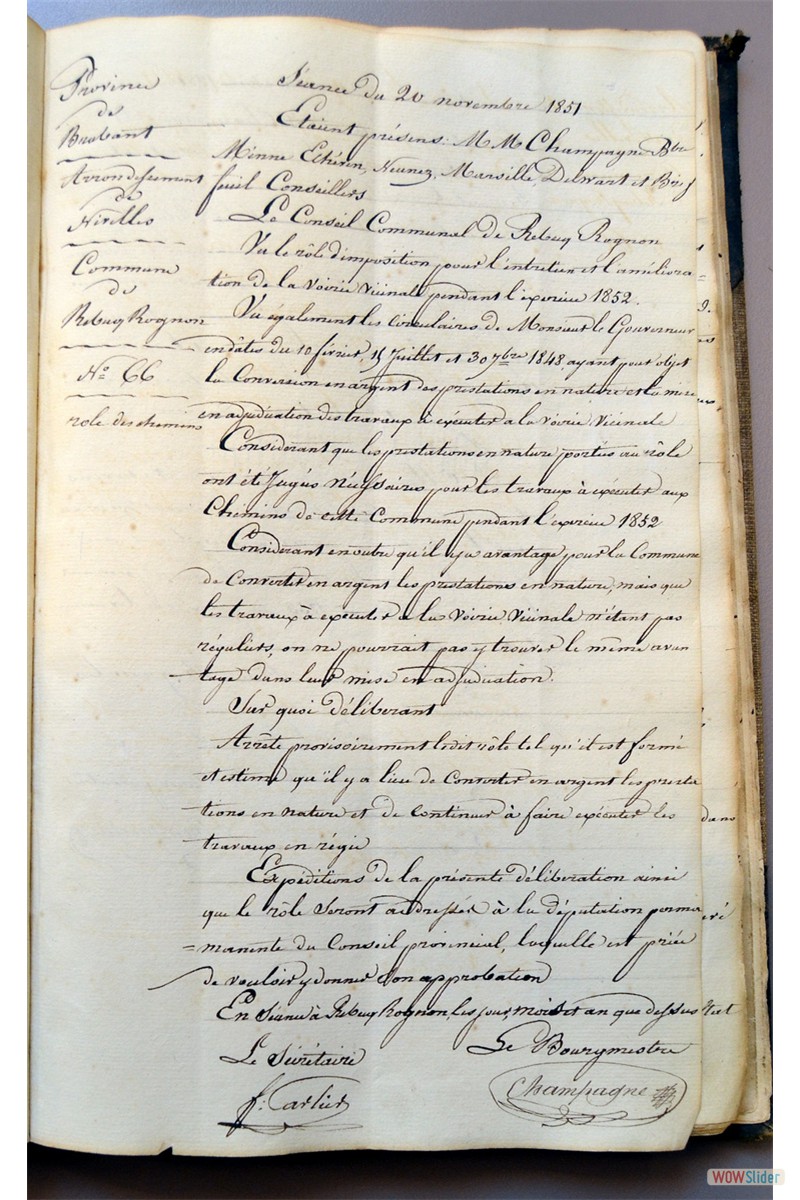 Province
de
Brabant
Arrondissement
de
Nivelles
Commune
de
Rebecq Rognon
N° 66
role des chemins
Séance du 20 novembre 1851
Etaient présens: M M Champagne Bre
Minne Echérin, Neunez, Marsille, Delwart et Brief
feuil Conseillers
Le Conseil Communal de Rebecq Rognon
Vu le rôle d'imposition pour l'entretien et l'améliora
tion de la Voirie Vicinale pendant l'exercice 1852.
Vu également les circulaires de Monsieur le Gouverneur
en dâtes du 10 février, 15 Juillet et 30 7bre 1848 ayant pour objet
la Conversion en argent des prestations en nature et la mise
en adjudication des travaux à exécuter a la Voirie Vicinale
Considérant que les prestations en nature portées au rôle
ont été Jugés nécessaires pour les travaux à exécuter aux
Chemins de cette Commune pendant l'exercice 1852
Considérant en outre qu'il y a avantage pour la Commune
de Convertir en argent les prestations en nature, mais que
les travaux à exécuter a la Voirie Vicinale n'étant pas
réguliers, on ne pourrait pas y trouver le même avan
tage dans leur mise en adjudication.
Sur quoi délibérant
Arrête provisoirement ledit rôle tel qu'il est formé
et estime qu'il y a lieu de Convertir en argent les presta
tions en nature et de continuer à faire exécuter les
travaux en régie
Expéditions de la présente délibération ainsi
que le rôle seront adressés à la députation perma
=manente du Conseil provincial, laquelle est priée
de vouloir y donner son approbation
En séance à Rebecq Rognon, les jour, mois et an que dessus
Le Sécrétaire
Le Bourgmestre
f. Carlier
Champagne
dans
WOWSlider